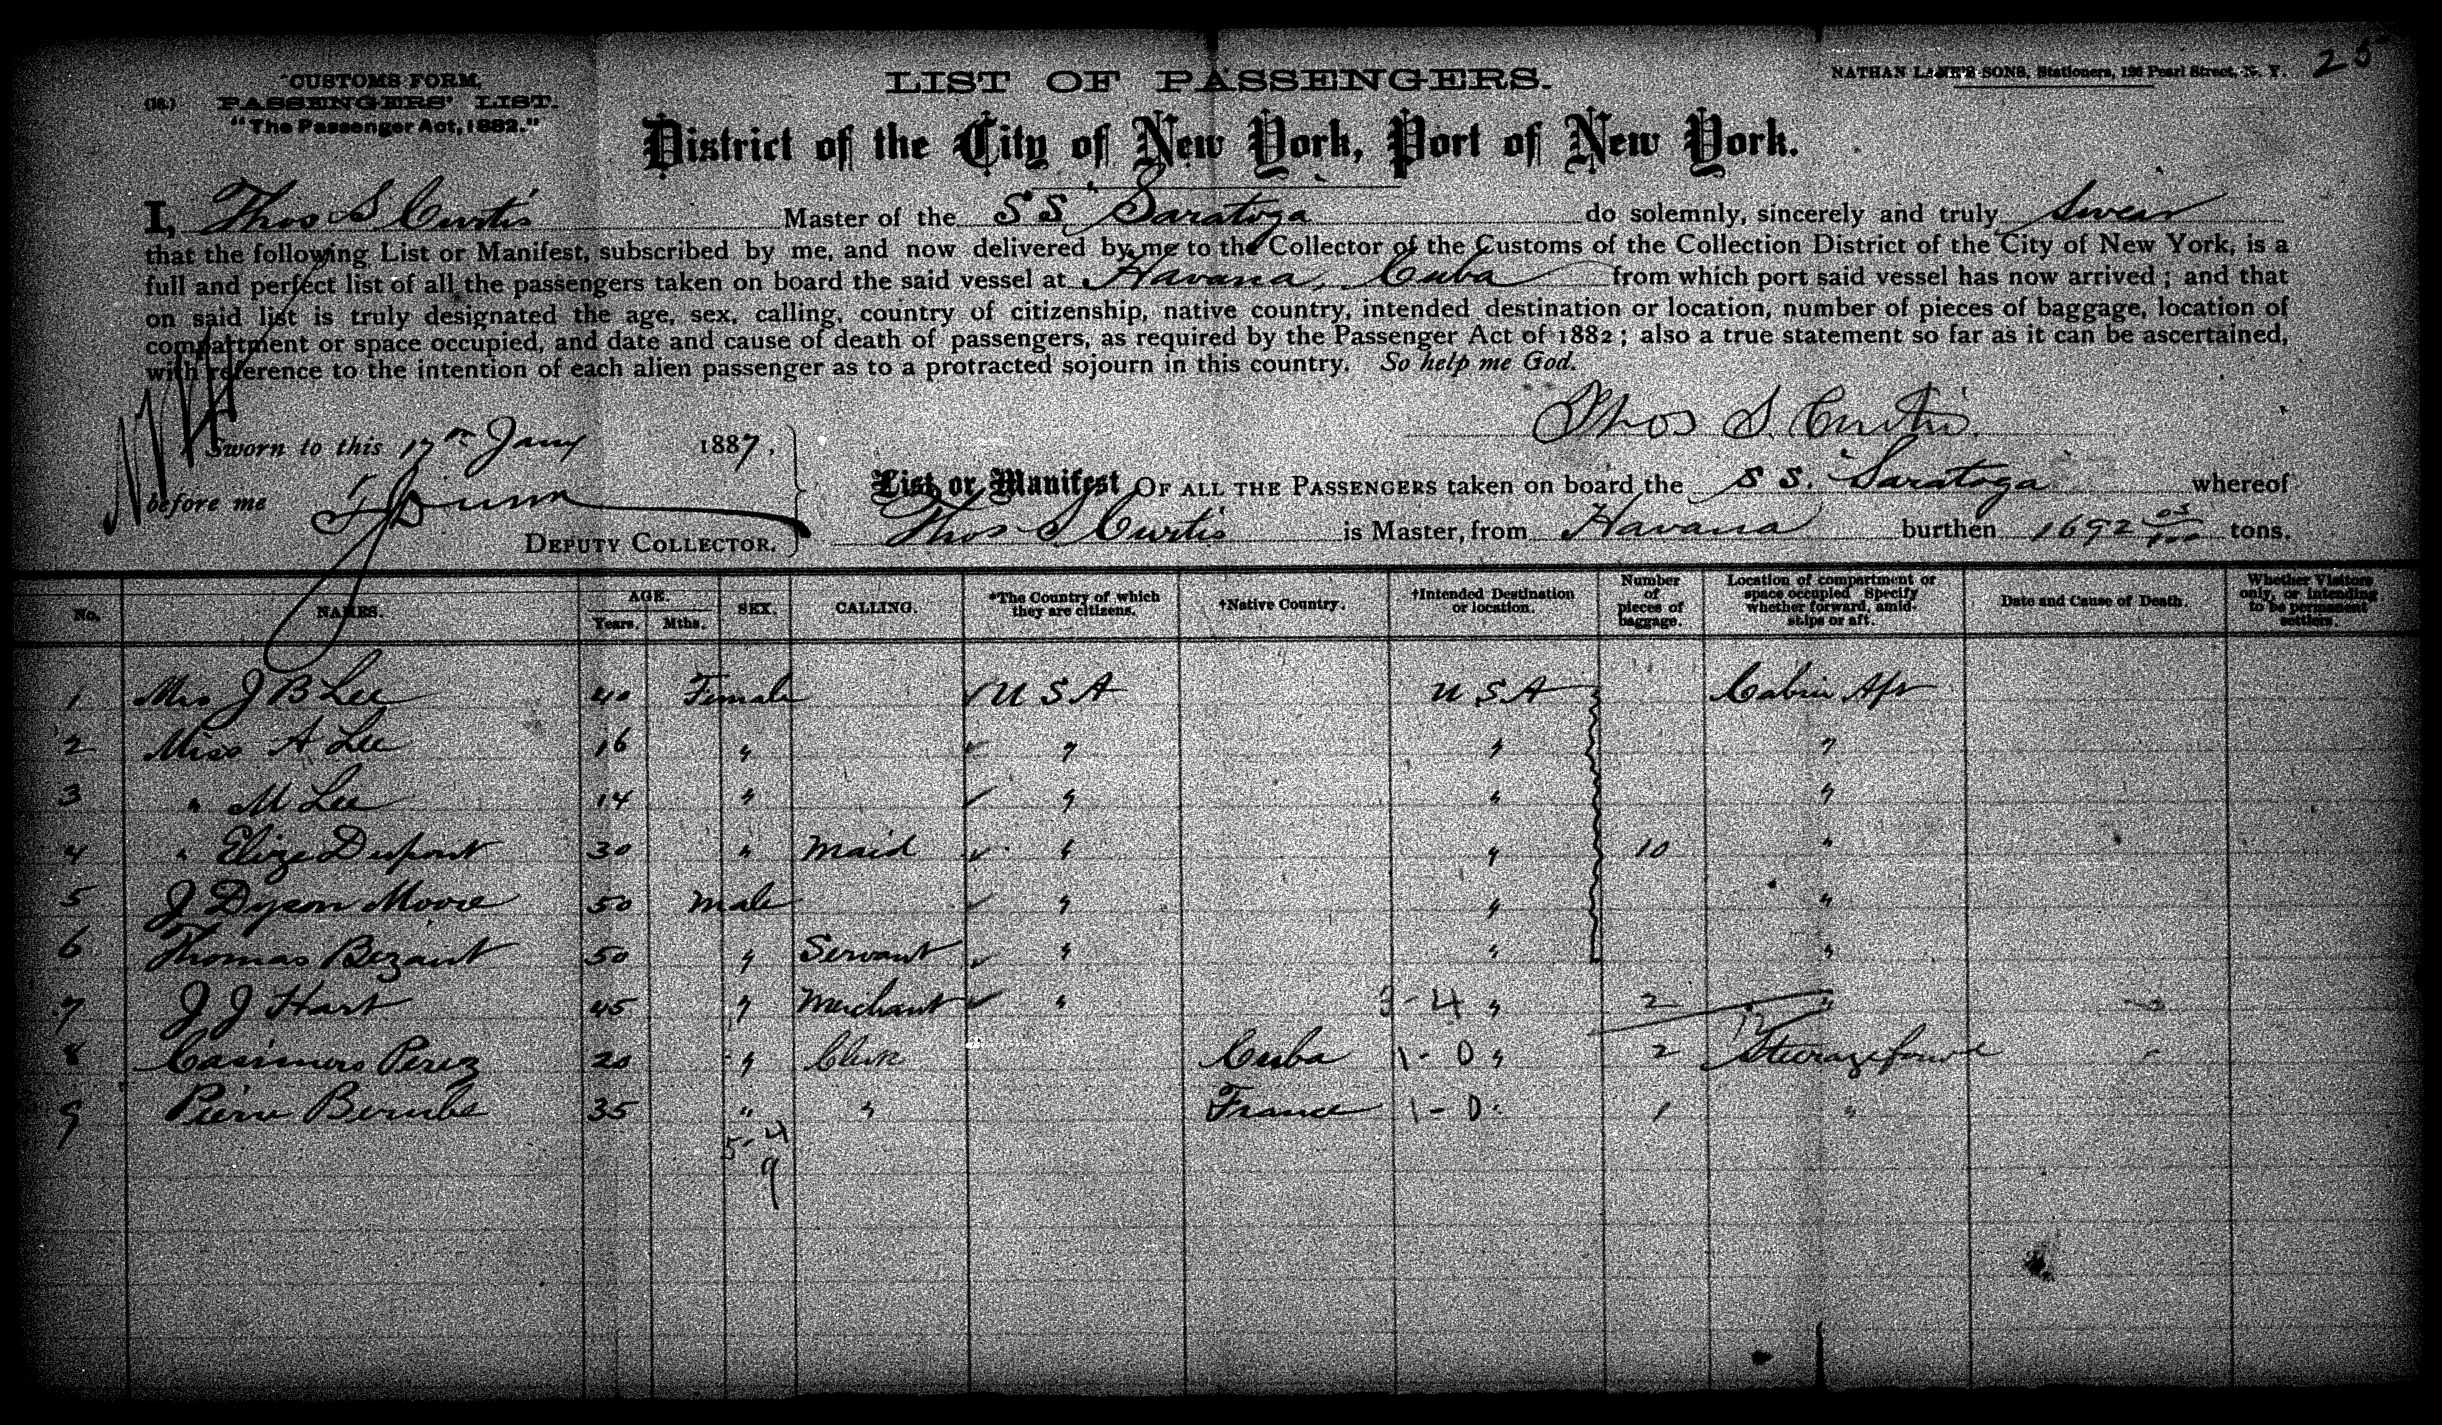 25
CUSTOMS FORM.
(18.) PASSENGERS' LIST.
"The Passenger Act, 1882."
LIST OF PASSENGERS.
NATHAN LANE'S SONS, Stationers, 196 Pearl Street, N. Y.
District of the City of New York, Port of New York.
I, Thos S Curtis Master of the SS Saratoga do solemnly, sincerely and truly swear
that the following List or Manifest, subscribed by me, and now delivered by me to the Collector of the Customs of the Collection District of the City of New York, is a
full and perfect list of all the passengers taken on board the said vessel at Havana, Cuba from which port said vessel has now arrived; and that
on said list is truly designated the age, sex, calling, country of citizenship, native country, intended destination or location, number of pieces of baggage, location of
compartment or space occupied, and date and cause of death of passengers, as required by the Passenger Act of 1882; also a true statement so far as it can be ascertained,
with reference to the intention of each alien passenger as to a protracted sojourn in this country. So help me God.
Thos S. Curtis.
Sworn to this 17th Jany 1887,
before me
DEPUTY COLLECTOR.
List or Manifest OF ALL THE PASSENGERS taken on board the SS. Saratoga whereof
Thos S Curtis is Master, from Havana burthen 1692 03/100 tons.
No. NAMES. AGE. Years. Mths. SEX. CALLING. *The Country of which they are citizens. †Native Country. †Intended Destination or location. Number of pieces of baggage. Location of compartment or space occupied Specify whether forward, amidships or aft. Date and Cause of Death. Whether Visitors only, or intending to be permanent settlers.
1 Mrs J B Lee 40 Female ✓ U S A U S A Cabin Aft
2 Miss A Lee 16 " ✓ " " "
3 " M Lee 14 " ✓ " " "
4 " Elize Dupont 30 " Maid ✓ " " 10 "
5 J Dyson Moore 50 Male ✓ " " "
6 Thomas Bezant 50 " Servant ✓ " " "
7 J J Hart 45 " Merchant ✓ " 3-4 " 2 "
8 Casimero Perez 20 " Clerk Cuba 1-0 " 2 Steerage forwd
9 Pierre 35 " " France 1-0 " 1 "
5-4
9